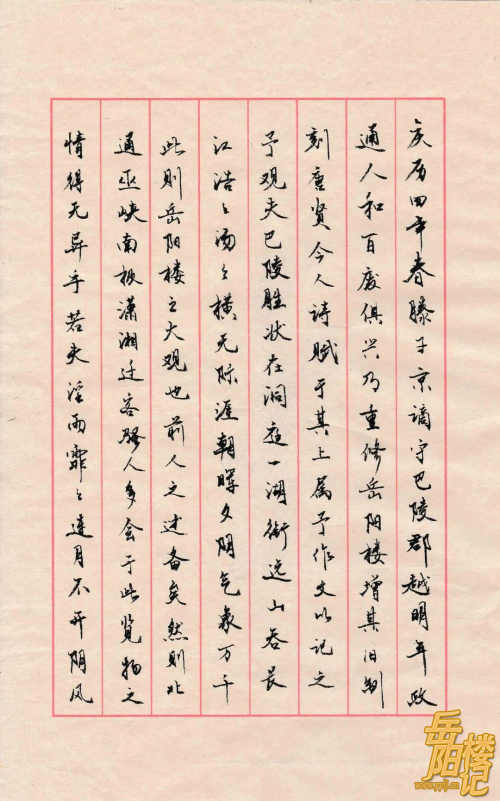 庆历四年春滕子京谪守巴陵郡越明年政
通人和百废俱兴乃重修岳阳楼增其旧制
刻唐贤今人诗赋于其上属予作文以记之
予观夫巴陵胜状在洞庭一湖衔远山吞长
江浩々汤々横无际涯朝晖夕阴气象万千
此则岳阳楼之大观也前人之述备矣然则北
通巫峡南极潇湘迁客骚人多会于此览物之
情得无异乎若夫淫雨霏々连月不开阴风
岳阳楼记